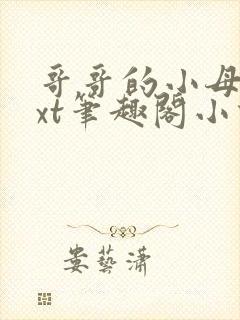 哥哥的小母
xt笔趣阁小
娄艺潇